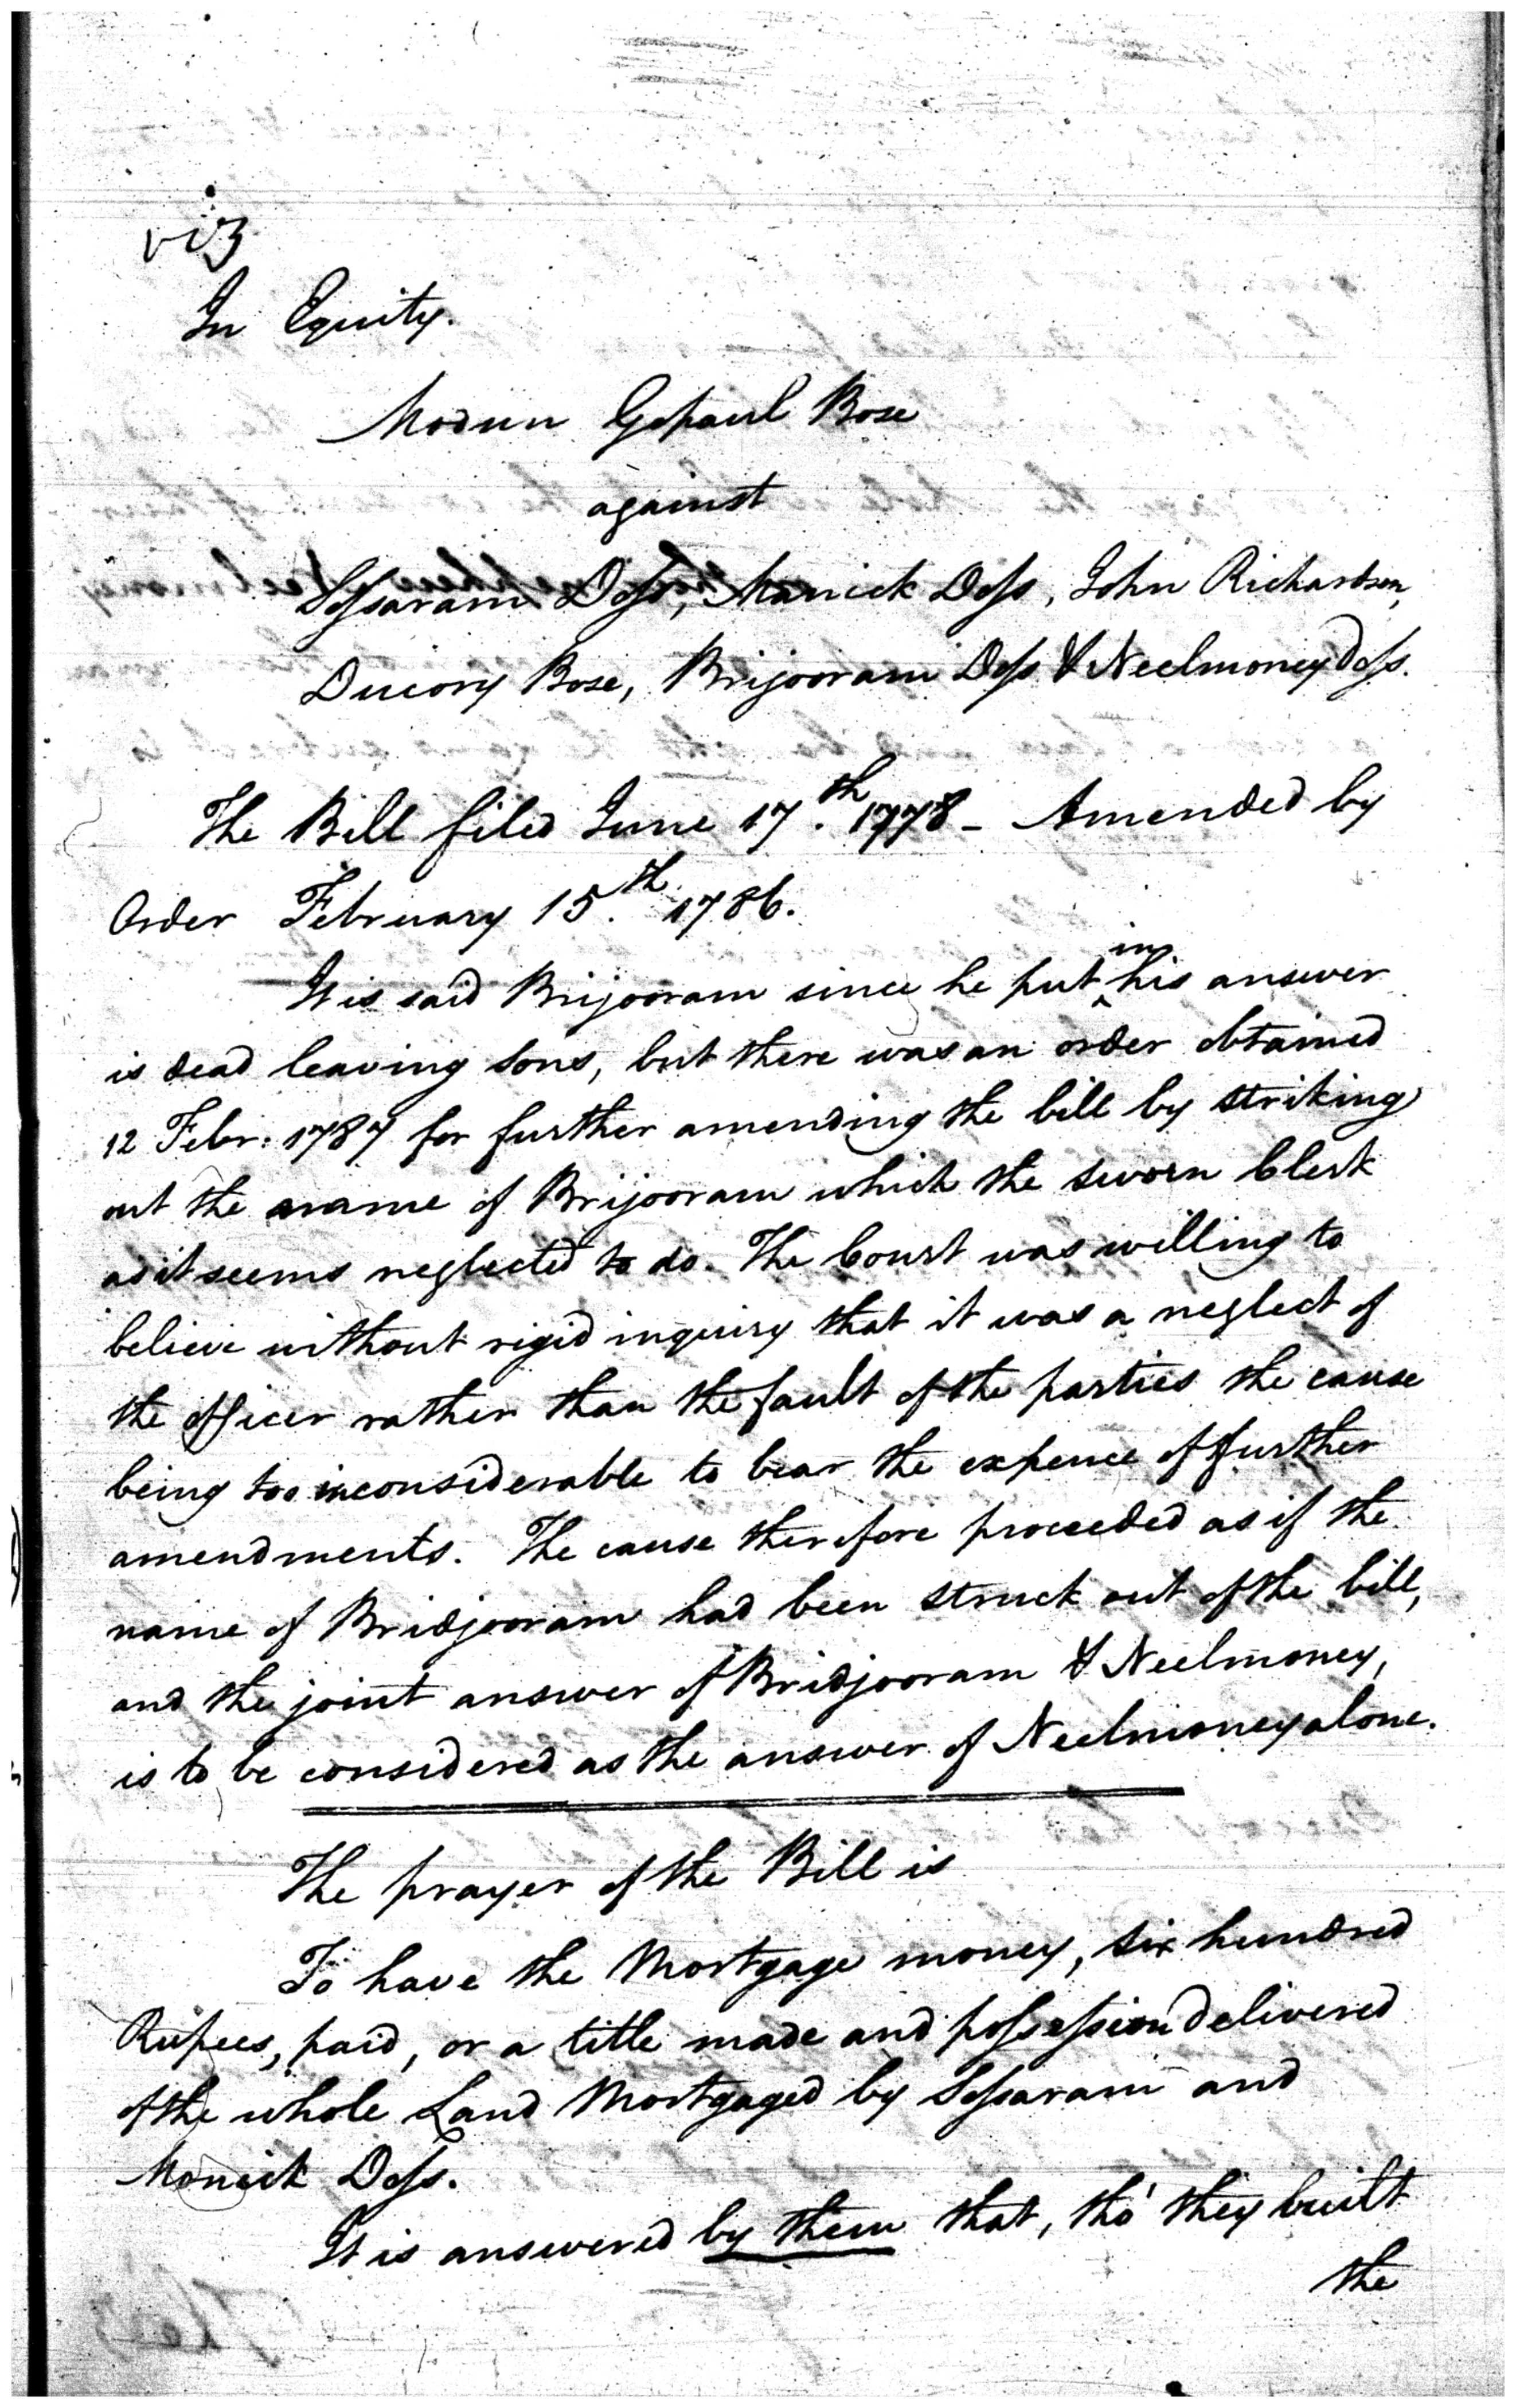 viz
In Equity.
Modun Gopaul Bose
against
Sessaram Doss, Manick Doss, John Richardson,
Ducory Bose, Brijooram Doss & Neelmoney Doss.
The Bill filed June 17.th 1778 - Amended by
Order February 15.th 1786.
It is said Brijooram since he put in his answer
is dead leaving sons, but there was an order obtained
12 Febr: 1787 for further amending the bill by striking
out the name of Brijooram which the sworn Clerk
as it seems neglected to do. The Court was willing to
believe without rigid inquiry that it was a neglect of
the officer rather than the fault of the parties the cause
being too inconsiderable to bear the expence of further
amendments. The cause therefore proceeded as if the
name of Bridjooram had been struck out of the bill,
and the joint answer of Bridjooram & Neelmoney,
is to be considered as the answer of Neelmoney alone.
The prayer of the Bill is
To have the Mortgage money, six hundred
Rupees, paid, or a title made and possession delivered
of the whole Land Mortgaged by Sessaram and
Monick Doss.
It is answered by them that, tho' they built
the